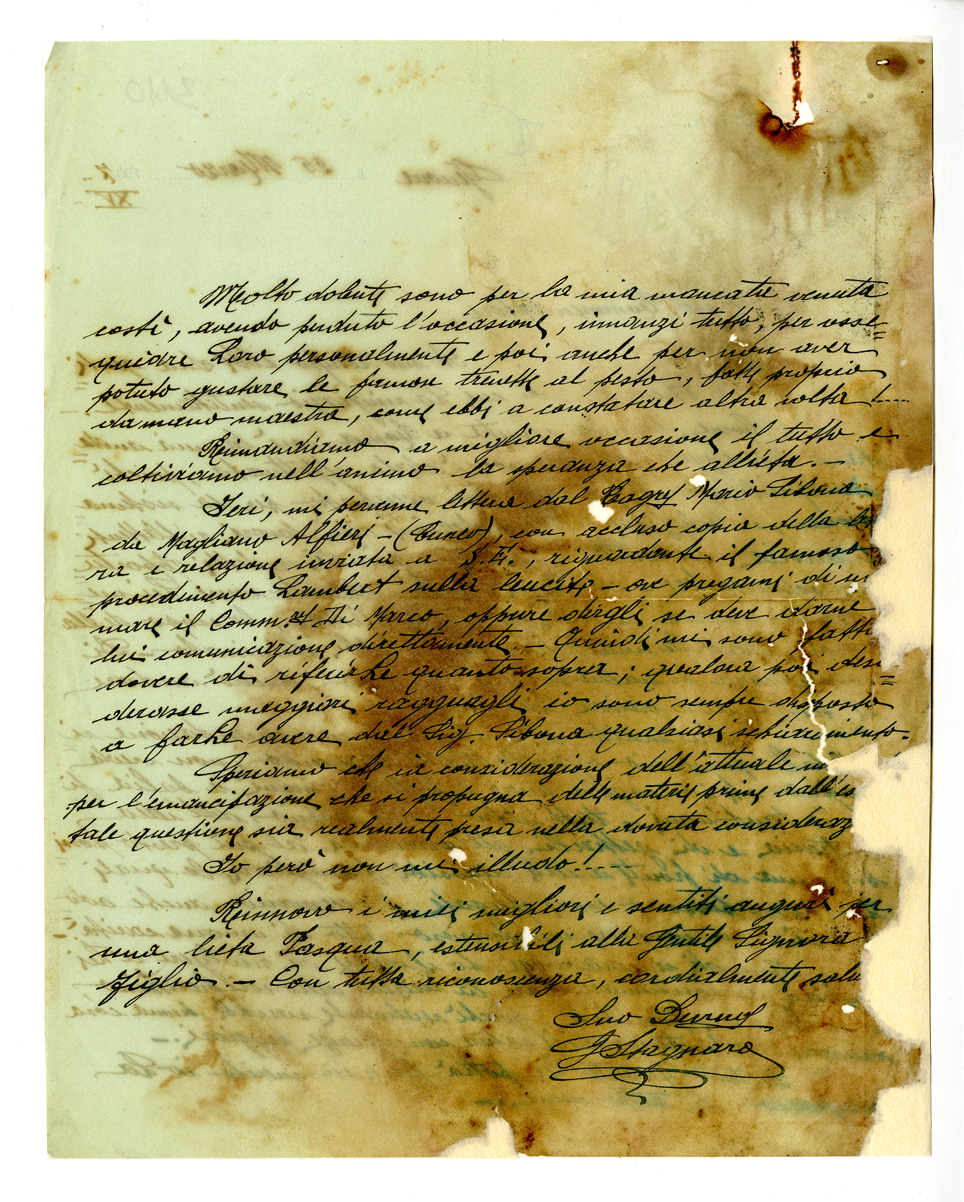 Molto dolente sono per la mia mancata venuta
costì, avendo perduto l'occasione, innanzi tutto, per osse=
quiare Loro personalmente e poi anche per non aver
potuto gustare le famose trenette al pesto, fatte proprio
da mano maestra, come ebbi a constatare altra volta!....
Rimandiamo a migliore occasione il tutto e
coltiviamo nell'animo la speranza che allieta. -
Ieri, mi pervenne lettera dal Mario Sibona
da Magliano Alfieri - (Cuneo), con accluso copia della
ra e relazione inviata a S.E., riguardante il famoso
procedimento Lambert sulla leucite - ove pregarmi di
mare il Comm. Di Marco, oppure dirgli se deve darne
lui comunicazione direttamente. - Quindi mi sono fatto
dovere di riferirLe quanto sopra; qualora poi desi=
derasse maggiori ragguagli io sono sempre disposto
a farLe avere dal Sig. Sibona qualsiasi schiarimento. -
Speriamo che in considerazione dell'attuale
per l'emancipazione che si propugna delle materie prime dall'
tale questione sia realmente presa nella dovuta consideraz
Io però non mi illudo!...
Rinnovo i miei migliori e sentiti auguri per
una lieta Pasqua, estensibili alla Gentile Signora
figlio. - Con tutta riconoscenza, cordialmente salu
Suo
G Stagnaro